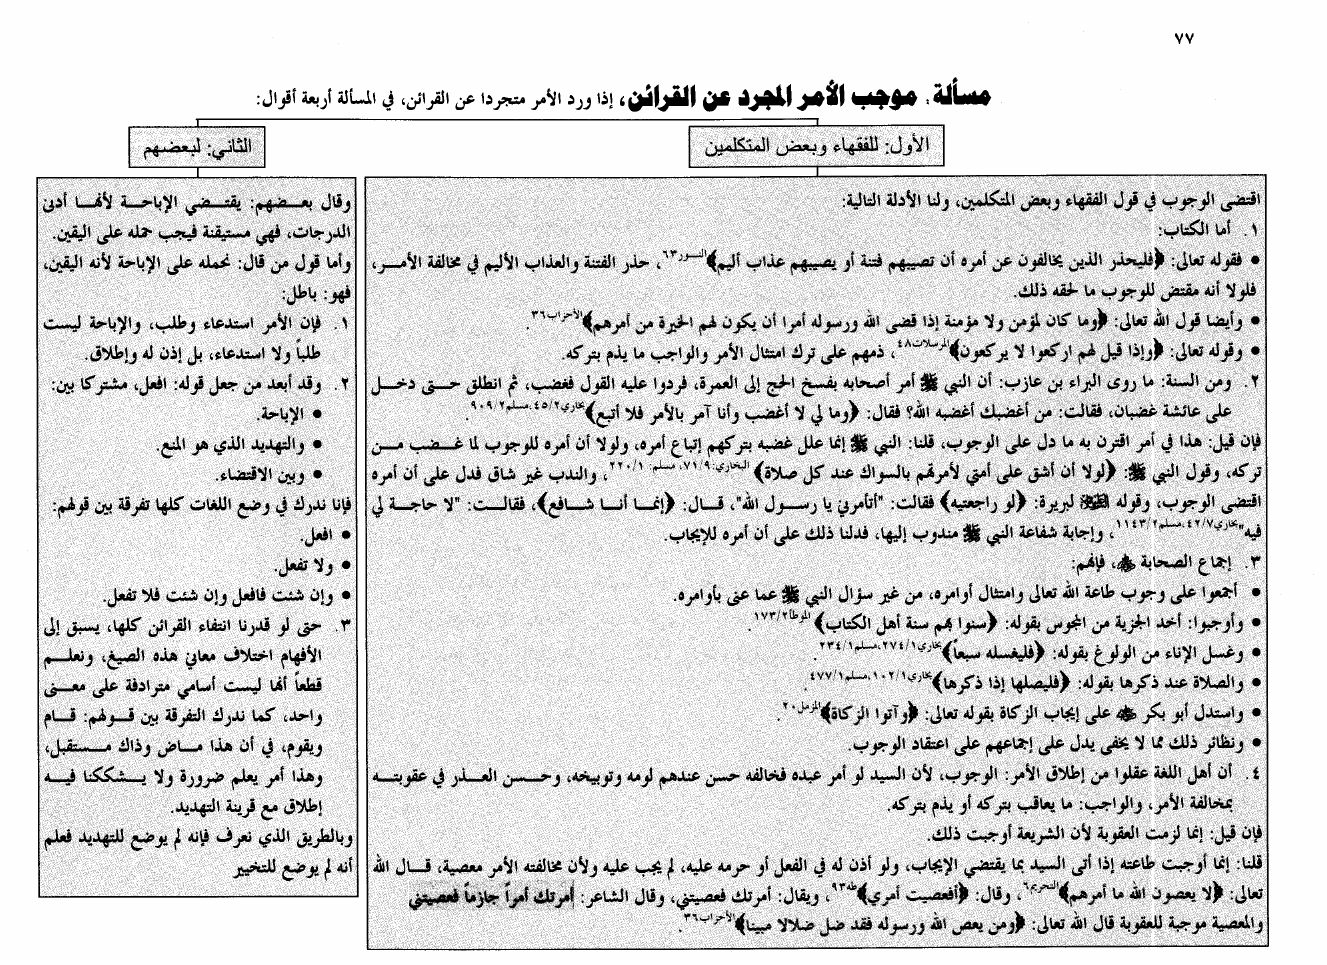 ٧٧
مسألة: موجب الأمر المجرد عن القرائن، إذا ورد الأمر متجردا عن القرائن، في المسألة أربعة أقوال:
الأول: للفقهاء وبعض المتكلمين
اقتضى الوجوب في قول الفقهاء وبعض المتكلمين، ولنا الأدلة التالية:
١. أما الكتاب:
• فقوله تعالى: ﴿فليحذر الذين يخالفون عن أمره أن تصيبهم فتنة أو يصيبهم عذاب أليم﴾النور٦٣، حذر الفتنة والعذاب الأليم في مخالفة الأمر،
فلولا أنه مقتض للوجوب ما لحقه ذلك.
• وأيضا قول الله تعالى: ﴿وما كان لمؤمن ولا مؤمنة إذا قضى الله ورسوله أمرا أن يكون لهم الخيرة من أمرهم﴾الأحزاب٣٦.
• وقوله تعالى: ﴿وإذا قيل لهم اركعوا لا يركعون﴾المرسلات٤٨، ذمهم على ترك امتثال الأمر والواجب ما يذم بتركه.
٢. ومن السنة: ما روى البراء بن عازب: أن النبي ﷺ أمر أصحابه بفسخ الحج إلى العمرة، فردوا عليه القول فغضب، ثم انطلق حتى دخل
على عائشة غضبان، فقالت: من أغضبك أغضبه الله؟ فقال: ﴿وما لي لا أغضب وأنا آمر بالأمر فلا أتبع﴾بخاري٤٥/٢،مسلم٩٠٩/٢.
فإن قيل: هذا في أمر اقترن به ما دل على الوجوب، قلنا: النبي ﷺ إنما علل غضبه بتركهم إتباع أمره، ولولا أن أمره للوجوب لما غضب من
تركه، وقول النبي ﷺ: ﴿لولا أن أشق على أمتي لأمرتهم بالسواك عند كل صلاة﴾البخاري:٧١/٩، مسلم:٢٢٠/١، والندب غير شاق فدل على أن أمره
اقتضى الوجوب، وقوله ﷺ لبريرة: ﴿لو راجعتيه﴾ فقالت: "أتأمرني يا رسول الله"، قال: ﴿إنما أنا شافع﴾، فقالت: "لا حاجة لي
فيه"بخاري٤٢/٧،مسلم١١٤٣/٢، وإجابة شفاعة النبي ﷺ مندوب إليها، فدلنا ذلك على أن أمره للإيجاب.
٣. إجماع الصحابة ﷺ، فإنهم:
• أجمعوا على وجوب طاعة الله تعالى وامتثال أوامره، من غير سؤال النبي ﷺ عما عنى بأوامره.
• وأوجبوا: أخذ الجزية من المجوس بقوله: ﴿سنوا بهم سنة أهل الكتاب﴾الموطأ١٧٣/٢.
• وغسل الإناء من الولوغ بقوله: ﴿فليغسله سبعاً﴾بخاري٢٧٤/١،مسلم٢٣٤/١.
• والصلاة عند ذكرها بقوله: ﴿فليصلها إذا ذكرها﴾بخاري١٠٢/١،مسلم٤٧٧/١.
• واستدل أبو بكر على إيجاب الزكاة بقوله تعالى: ﴿وآتوا الزكاة﴾المزمل٢٠.
• ونظائر ذلك مما لا يخفى يدل على إجماعهم على اعتقاد الوجوب.
٤. أن أهل اللغة عقلوا من إطلاق الأمر: الوجوب، لأن السيد لو أمر عبده فخالفه حسن عندهم لومه وتوبيخه، وحسن العذر في عقوبته
بمخالفة الأمر، والواجب: ما يعاقب بتركه أو يذم بتركه.
فإن قيل: إنما لزمت العقوبة لأن الشريعة أوجبت ذلك.
قلنا: إنما أوجبت طاعته إذا أتى السيد بما يقتضي الإيجاب، ولو أذن له في الفعل أو حرمه عليه، لم يجب عليه ولأن مخالفته الأمر معصية، قال الله
تعالى: ﴿لا يعصون الله ما أمرهم﴾التحريم٦، وقال: ﴿أفعصيت أمري﴾طه٩٣، ويقال: أمرتك فعصيتني، وقال الشاعر: أمرتك أمراً جازماً فعصيتني
والمعصية موجبة للعقوبة قال الله تعالى: ﴿ومن يعص الله ورسوله فقد ضل ضلالا مبينا﴾الأحزاب٣٦.
الثاني: لبعضهم
وقال بعضهم: يقتضي الإباحة لأنها أدنى
الدرجات، فهي مستيقنة فيجب حمله على اليقين.
وأما قول من قال: نحمله على الإباحة لأنه اليقين،
فهو: باطل:
١. فإن الأمر استدعاء وطلب، والإباحة ليست
طلباً ولا استدعاء، بل إذن له وإطلاق.
٢. وقد أبعد من جعل قوله: افعل، مشتركا بين:
• الإباحة.
• والتهديد الذي هو المنع.
• وبين الاقتضاء.
فإنا ندرك في وضع اللغات كلها تفرقة بين قولهم:
• افعل.
• ولا تفعل.
• وإن شئت فافعل وإن شئت فلا تفعل.
٣. حتى لو قدرنا انتفاء القرائن كلها، يسبق إلى
الأفهام اختلاف معاني هذه الصيغ، ونعلم
قطعاً أنها ليست أسامي مترادفة على معنى
واحد، كما ندرك التفرقة بين قولهم: قام
ويقوم، في أن هذا ماض وذاك مستقبل،
وهذا أمر يعلم ضرورة ولا يشككنا فيه
إطلاق مع قرينة التهديد.
وبالطريق الذي نعرف فإنه لم يوضع للتهديد فعلم
أنه لم يوضع للتخيير